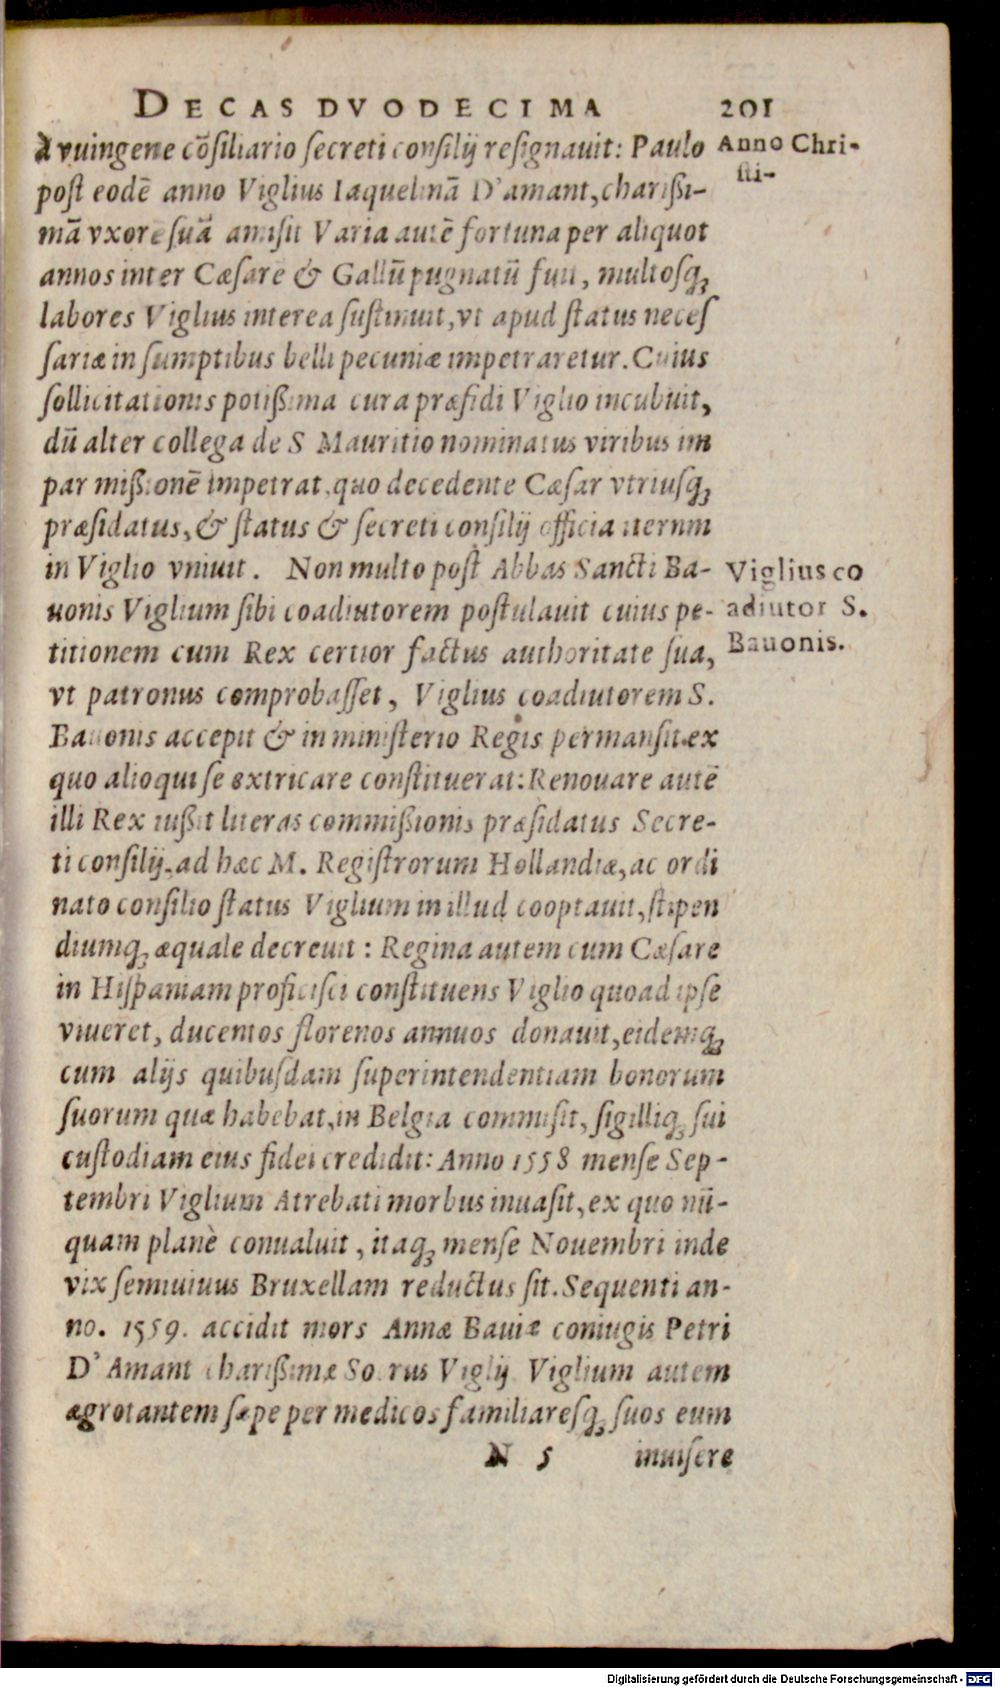 DECAS DVODECIMA 201
à vuingene cōsiliario secreti consilij resignauit: Paulo
Anno Chri-
sti-
post eodē anno Viglius Iaquelinā D'amant, charißi-
mā vxorē suā amisit Varia autē fortuna per aliquot
annos inter Cæsarē & Gallū pugnatū fuit, multosq;
labores Viglius interea sustinuit, vt apud status neces
sariæ in sumptibus belli pecuniæ impetraretur. Cuius
sollicitationis potißima cura præsidi Viglio incubuit,
dū alter collega de S Mauritio nominatus viribus im
par mißionē impetrat, quo decedente Cæsar vtriusq;
præsidatus, & status & secreti consilij officia iterum
in Viglio vniuit. Non multo post Abbas Sancti Ba-
uonis Viglium sibi coadiutorem postulauit cuius pe-
Viglius co
adiutor S.
Bauonis.
titionem cum Rex certior factus authoritate sua,
vt patronus comprobasset, Viglius coadiutorem S.
Bauonis accepit & in ministerio Regis permansit ex
quo alioqui se extricare constituerat: Renouare autē
illi Rex iußit literas commißionis præsidatus Secre-
ti consilij, ad hæc M. Registrorum Hollandiæ, ac ordi
nato consilio status Viglium in illud cooptauit, stipen
diumq; æquale decreuit: Regina autem cum Cæsare
in Hispaniam proficisci constituens Viglio quoad ipse
viueret, ducentos florenos annuos donauit, eidemq;
cum alijs quibusdam superintendentiam bonorum
suorum quæ habebat, in Belgia commisit, sigilliq; sui
custodiam eius fidei credidit: Anno 1558 mense Sep-
tembri Viglium Atrebati morbus inuasit, ex quo nū-
quam planè conualuit, itaq; mense Nouembri inde
vix semiuiuus Bruxellam reductus sit. Sequenti an-
no. 1559. accidit mors Annæ Bauiæ coniugis Petri
D'Amant charißimæ Socrus Viglij Viglium autem
ægrotantem sæpe per medicos familiaresq; suos eum
N 5 inuisere
Digitalisierung gefördert durch die Deutsche Forschungsgemeinschaft - DFG